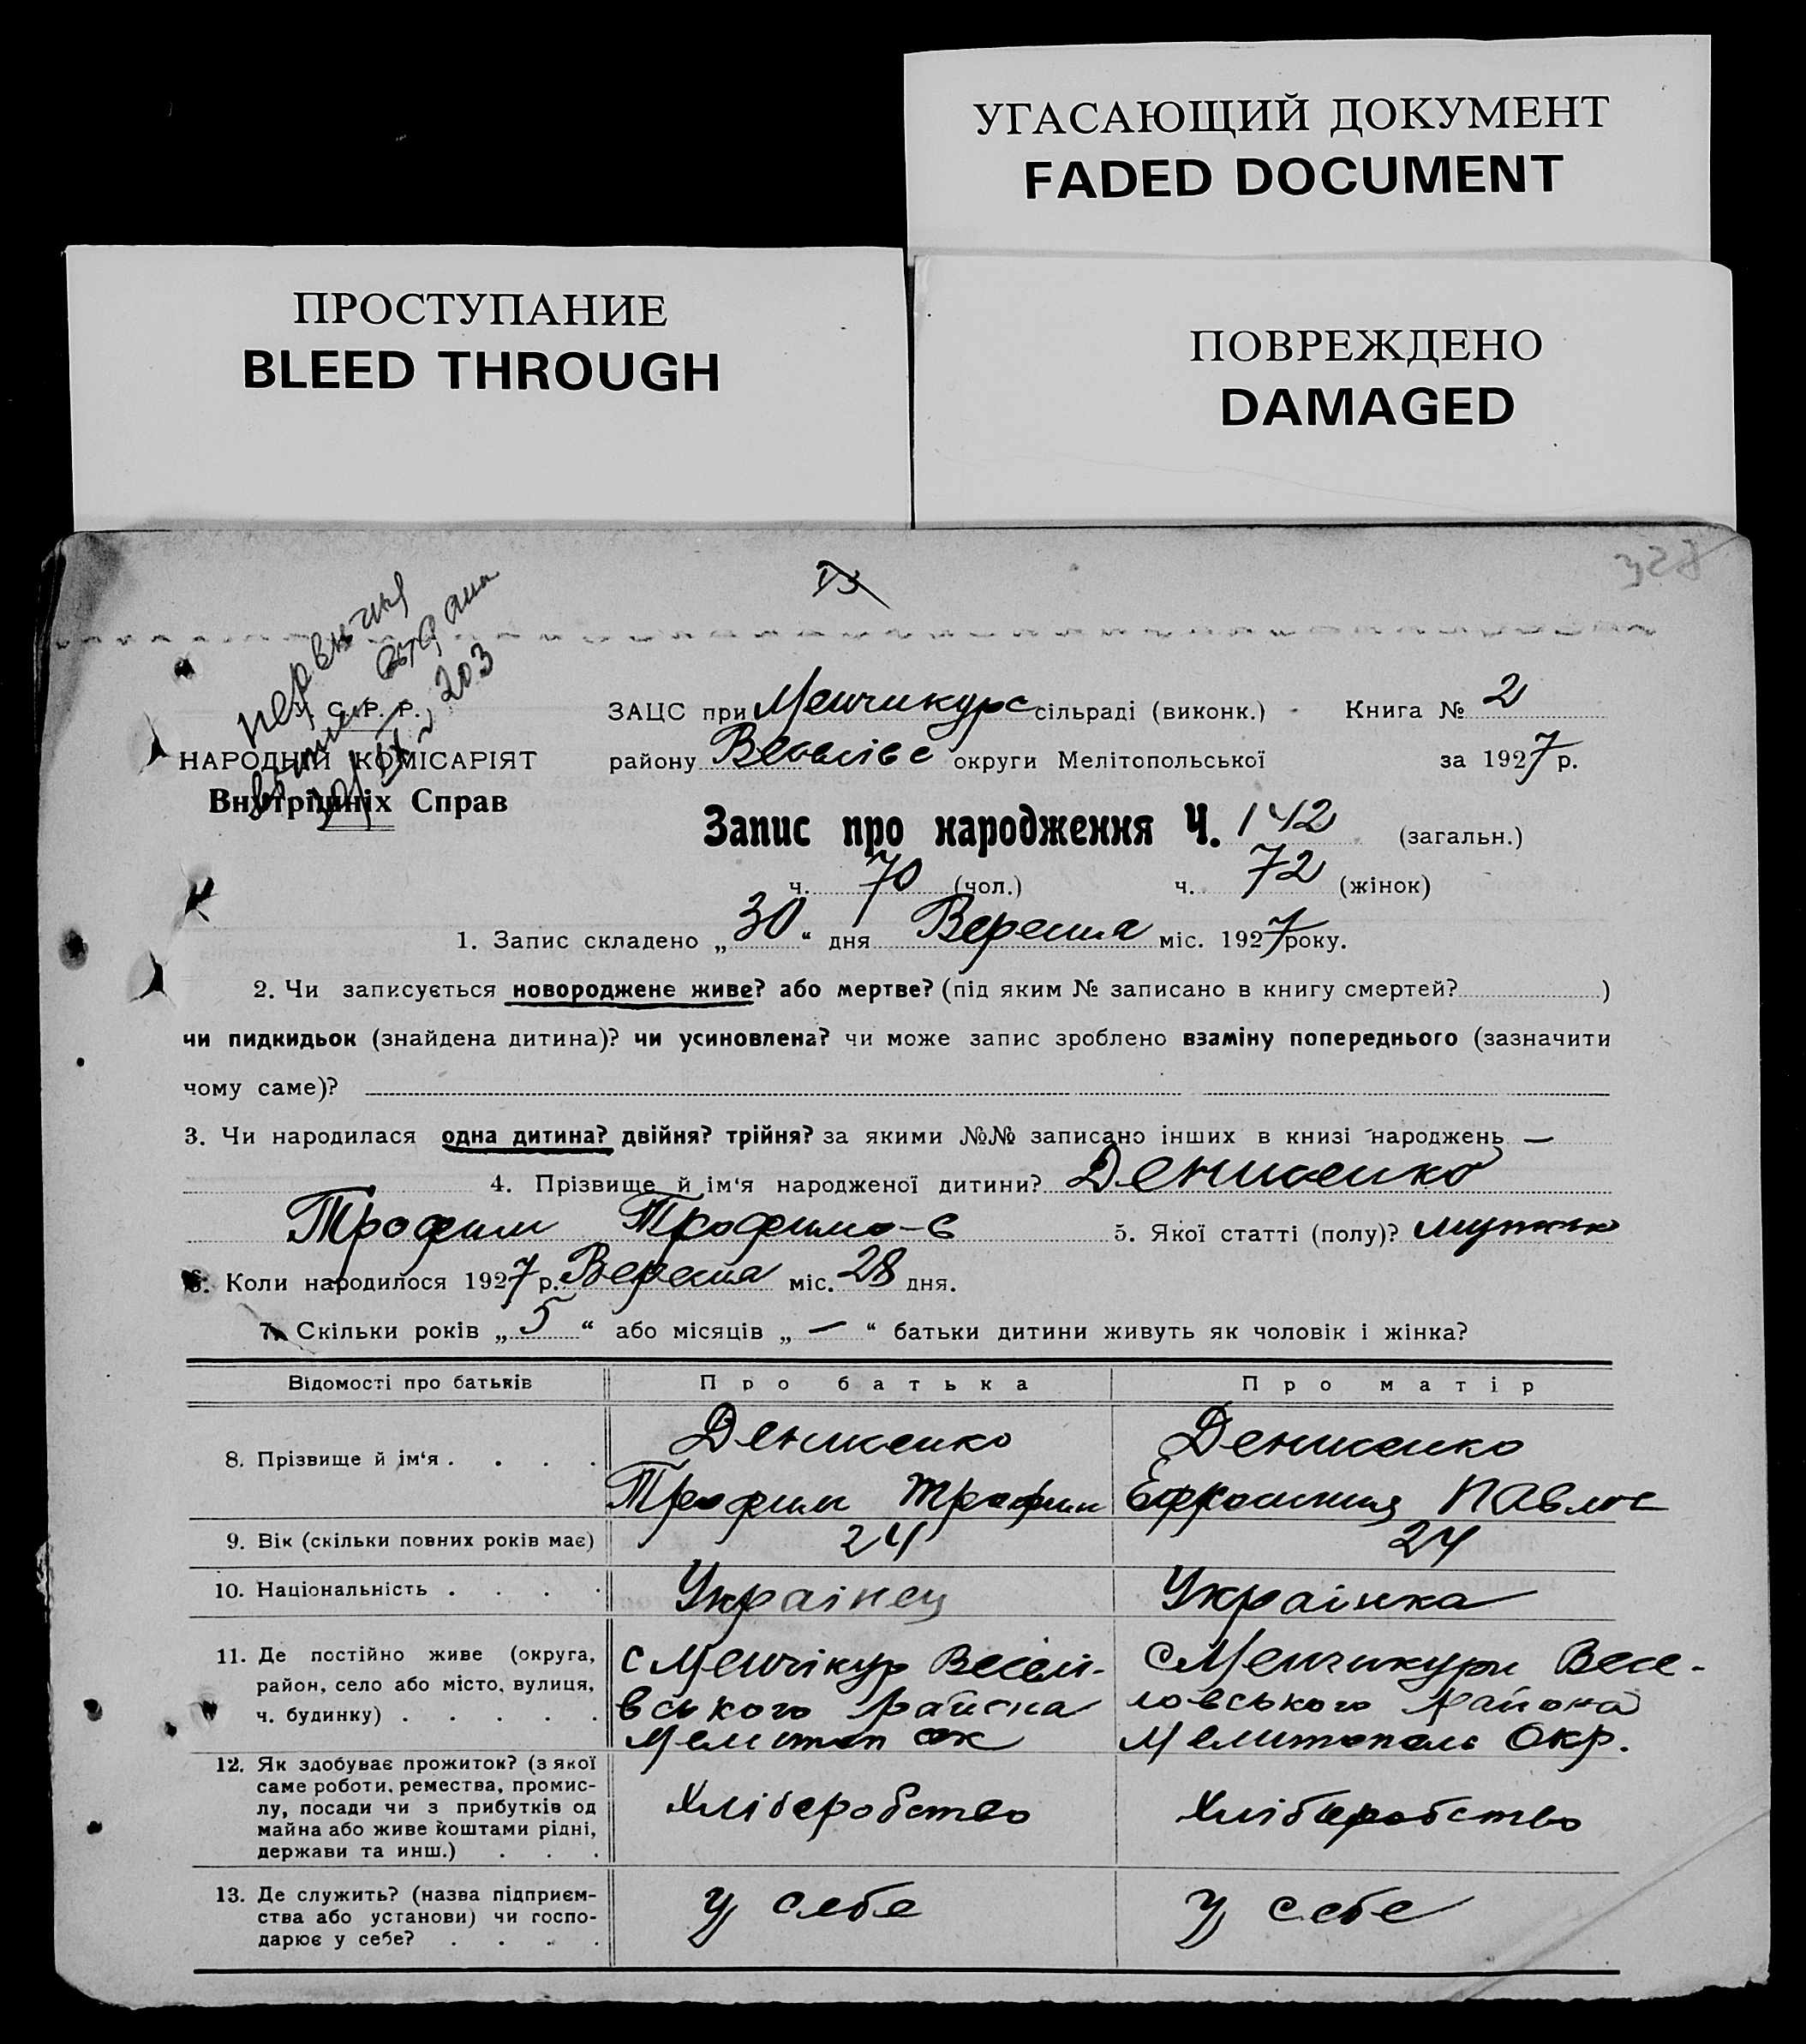 УГАСАЮЩИЙ ДОКУМЕНТ
FADED DOCUMENT
ПРОСТУПАНИЕ
BLEED THROUGH
ПОВРЕЖДЕНО
DAMAGED
328
203
С. Р. Р.
НАРОДНІЙ КОМІСАРІЯТ
Внутрішніх Справ
ЗАЦС при Менчикурс сільраді (виконк.) Книга № 2
району Веселівс округи Мелітопольської за 1927 р.
Запис про народження Ч. 142 (загальн.)
ч. 70 (чол.) ч. 72 (жінок)
1. Запис складено „30“ дня Вересня міс. 1927 року.
2. Чи записується новороджене живе? або мертве? (під яким № записано в книгу смертей? )
чи пидкидьок (знайдена дитина)? чи усиновлена? чи може запис зроблено взаміну попереднього (зазначити
чому саме)?
3. Чи народилася одна дитина? двійня? трійня? за якими №№ записано інших в книзі народжень —
4. Прізвище й ім‘я народженої дитини? Денисенко
Трофим Трофимо-в 5. Якої статті (полу)?
6. Коли народилося 1927 р. Вересня міс. 28 дня.
7. Скільки років „5“ або місяців „—“ батьки дитини живуть як чоловік і жінка?
Відомості про батьків Про батька Про матір
8. Прізвище й ім‘я . . . . Денисенко Денисенко
Трофим Трофим Ефросиния Павлос
9. Вік (скільки повних років має) 24 24
10. Національність . . . . Украінец Украінка
11. Де постійно живе (округа, с Менчікур Веселі- с Менчикури Весе-
район, село або місто, вулиця, вського района ловського района
ч. будинку) . . . . . Мелитоп ок Мелитополь Окр.
12. Як здобуває прожиток? (з якої
саме роботи, ремества, промис-
лу, посади чи з прибутків од Хліборобство Хліборобство
майна або живе коштами рідні,
держави та инш.) . . .
13. Де служить? (назва підприєм- у себе у себе
ства або установи) чи госпо-
дарює у себе? . . . .